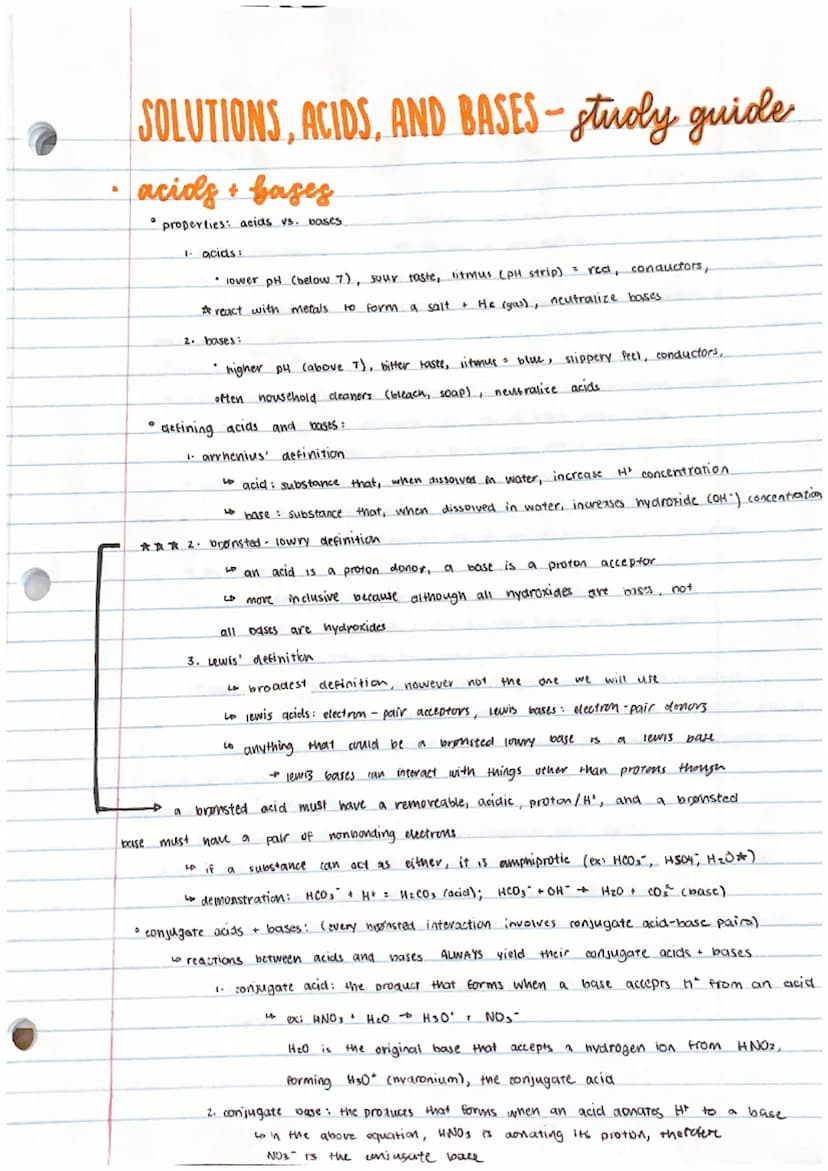 SOLUTIONS, ACIDS, AND BASES - study guide
• acids + bases
° properties: acids vs. bases
1. acids:
• lower pH (below 7), sour taste, litmus (pH strip) = red, conductors,
☆ react with metals to form a salt + H₂ (gas), neutralize bases
2. bases:
• higher pH (above 7), bitter taste, litmus = blue, slippery feel, conductors,
often household cleaners (bleach, soap), neutralize acids
° defining acids and bases:
1. arrhenius' definition
↳ acid: substance that, when dissolved in water, increase H⁺ concentration
↳ base: substance that, when dissolved in water, increases hydroxide (OH⁻) concentration
☆☆☆ 2. brønsted-lowry definition
↳ an acid is a proton donor, a base is a proton acceptor
↳ more inclusive because although all hydroxides are bases, not
all bases are hydroxides
3. lewis' definition
↳ broadest definition, however not the one we will use
↳ lewis acids: electron-pair acceptors, lewis bases: electron-pair donors
↳ anything that could be a brønsted lowry base is a lewis base
→ lewis bases can interact with things other than protons though
→ a brønsted acid must have a removeable, acidic, proton/H⁺, and a brønsted
base must have a pair of nonbonding electrons
↳ if a substance can act as either, it is amphiprotic (ex: HCO₃⁻, HSO₄⁻, H₂O☆)
↳ demonstration: HCO₃⁻ + H⁺ = H₂CO₃ (acid); HCO₃⁻ + OH⁻ → H₂O + CO₃²⁻ (base)
° conjugate acids + bases: (every brønsted interaction involves conjugate acid-base pairs)
↳ reactions between acids and bases ALWAYS yield their conjugate acids + bases
1. conjugate acid: the product that forms when a base accepts H⁺ from an acid
↳ ex: HNO₃ + H₂O → H₃O⁺ + NO₃⁻
H₂O is the original base that accepts a hydrogen ion from HNO₃,
forming H₃O⁺ (hydronium), the conjugate acid
2. conjugate base: the produces that forms when an acid donates H⁺ to a base
↳ in the above equation, HNO₃ is donating its proton, therefore
NO₃⁻ is the conjugate base